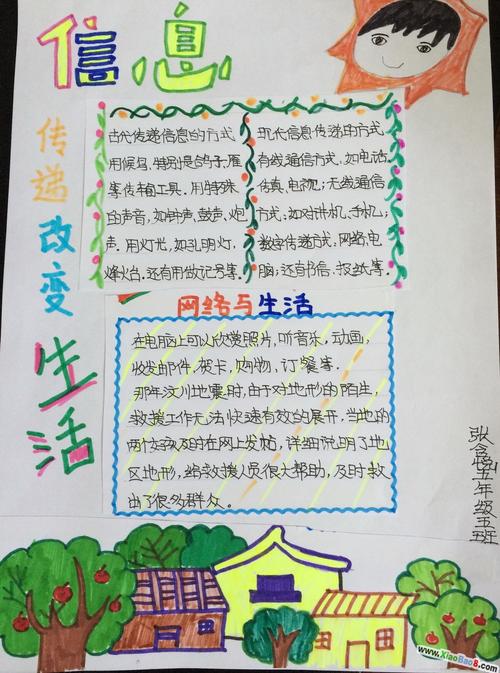 信息
传递
改变
生活
古代传递信息的方式
用候鸟，特别是鸽子雁
等传输工具，用特殊
的声音，如钟声，鼓声，炮
声．用灯光，如孔明灯，
烽火台，还有用做记号等．
现代信息传递的方式
有线通信方式，如电话，
传真，电视；无线通信
方式，如对讲机，手机；
数字传递方式，网络，电
脑；还有书信，报纸等．
网络与生活
在电脑上可以欣赏照片，听音乐，动画，
收发邮件，贺卡，购物，订餐等．
那年汶川地震时，由于对地形的陌生
救援工作无法快速有效的展开，当地的
两个女孩及时在网上发帖，详细说明了地
区地形，给救援人员很大帮助，及时救
出了很多群众。
张含 五年级五班
www.XiaoBao8.com